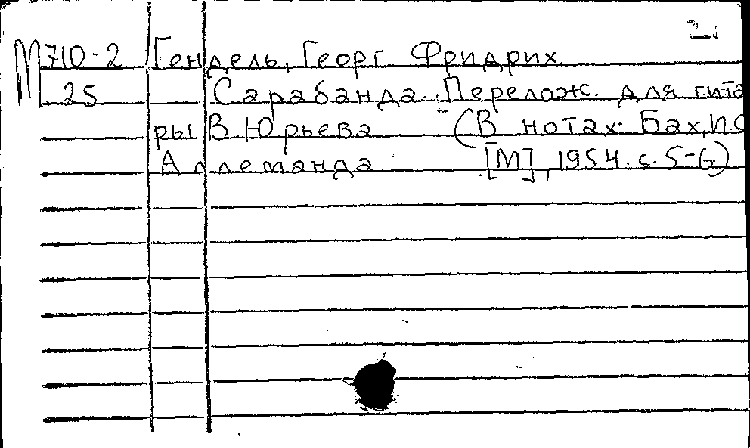 М710-2 Гендель, Георг Фридрих
25 Сарабанда. Перелож. для гита
ры В. Юрьева (В нотах: Бах, И.С
Аллеманда [М], 1954. с. 5-6)